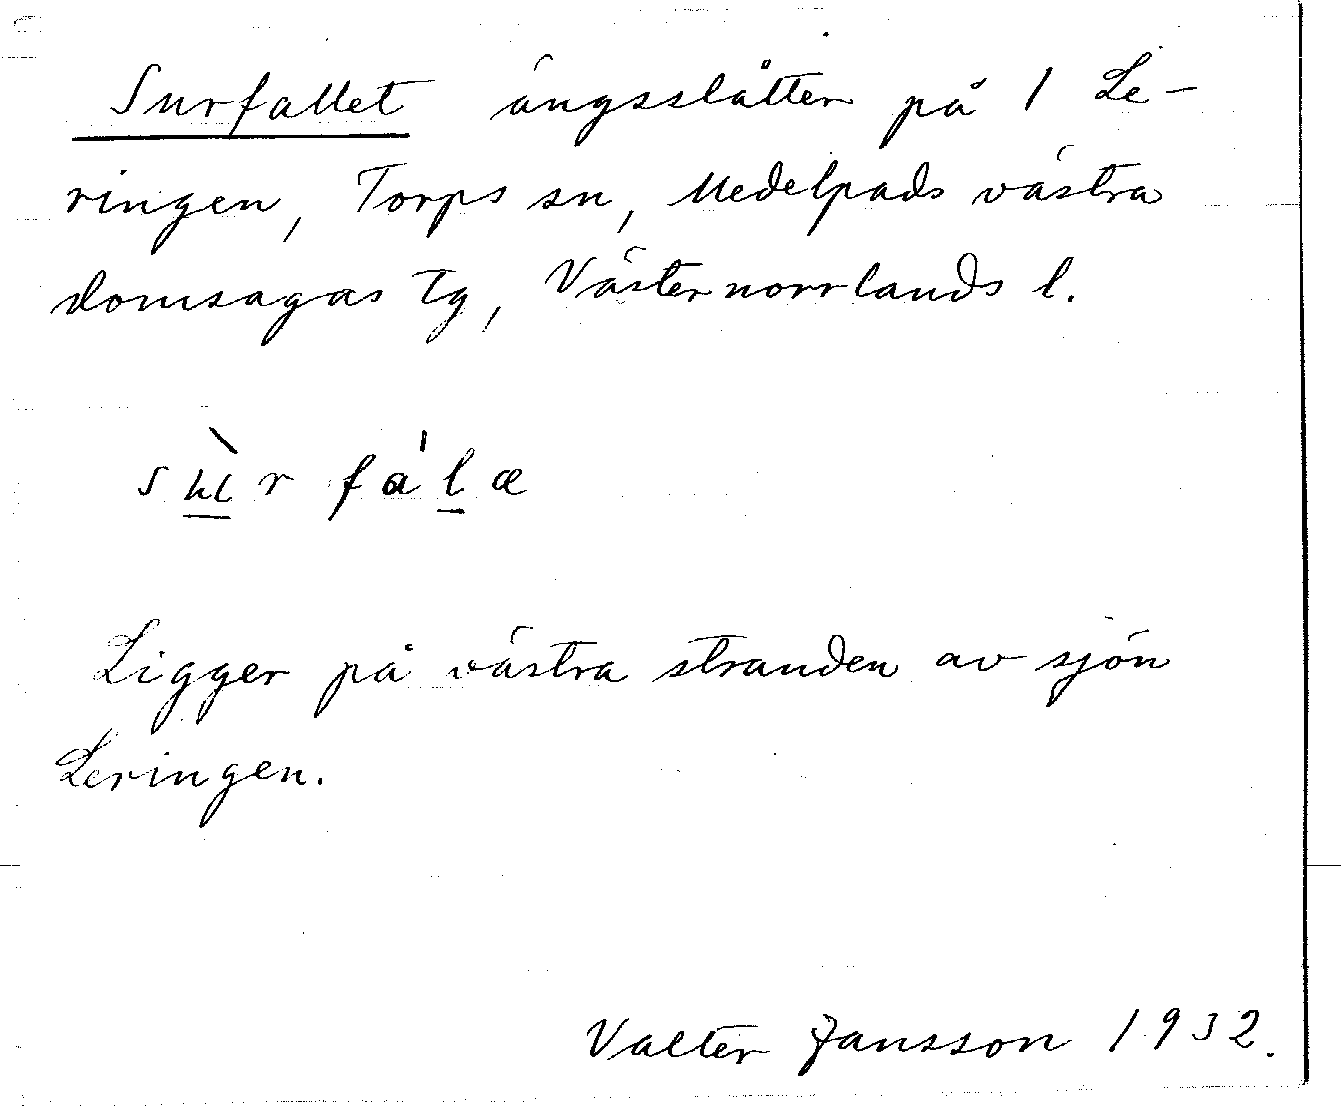 Surfallet ängsslåtter på 1 Le-
ringen, Torps sn, Medelpads västra
domsagas tg, Västernorrlands l.
Ligger på västra stranden av sjön
Leringen.
Valter Jansson 1932.